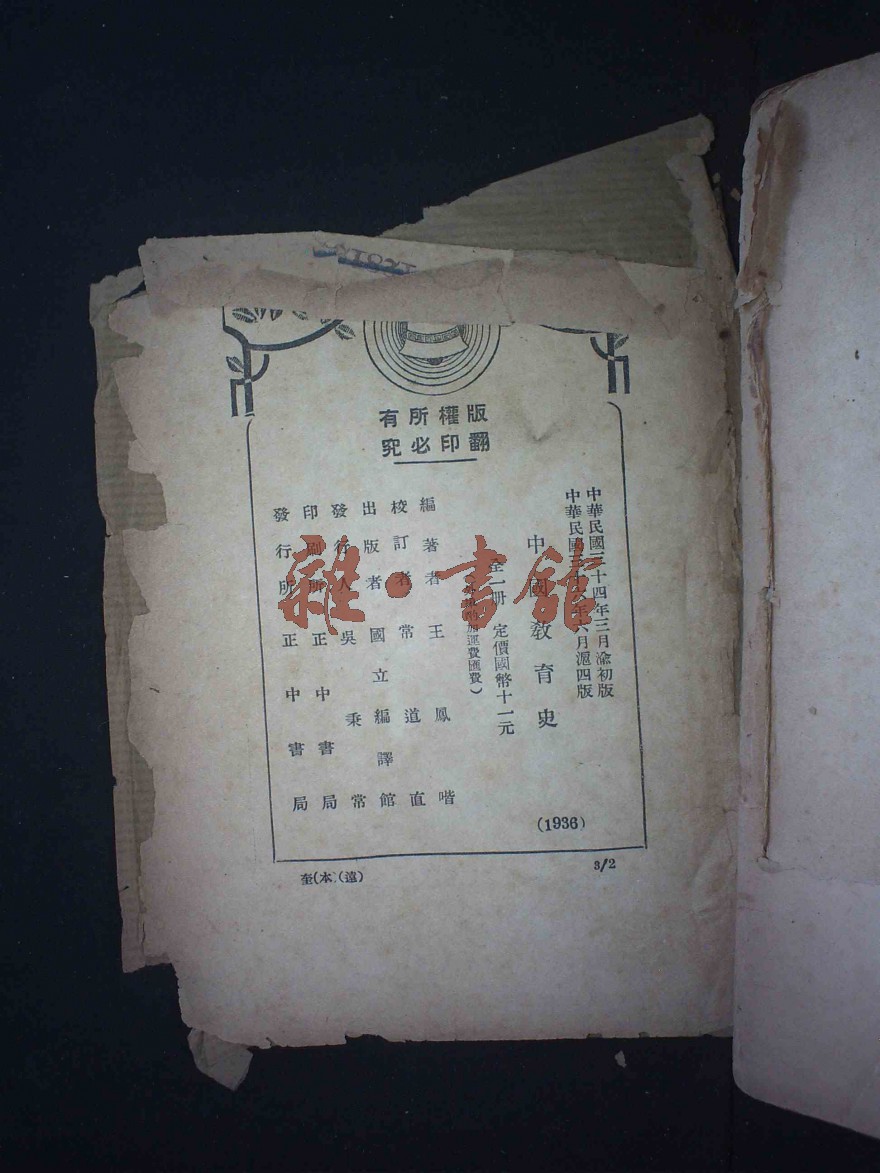 版權所有
翻印必究
中華民國三十四年三月渝初版
中華民國三十六年六月滬四版
中國教育史
全一册 定價國幣十一元
加運費匯費）
編著者 王鳳喈
校訂者 常道直
出版者 國立編譯館
發行人 吳秉常
印刷所 正中書局
發行所 正中書局
(1936)
3/2
奎(本.(遠)
雜·書館